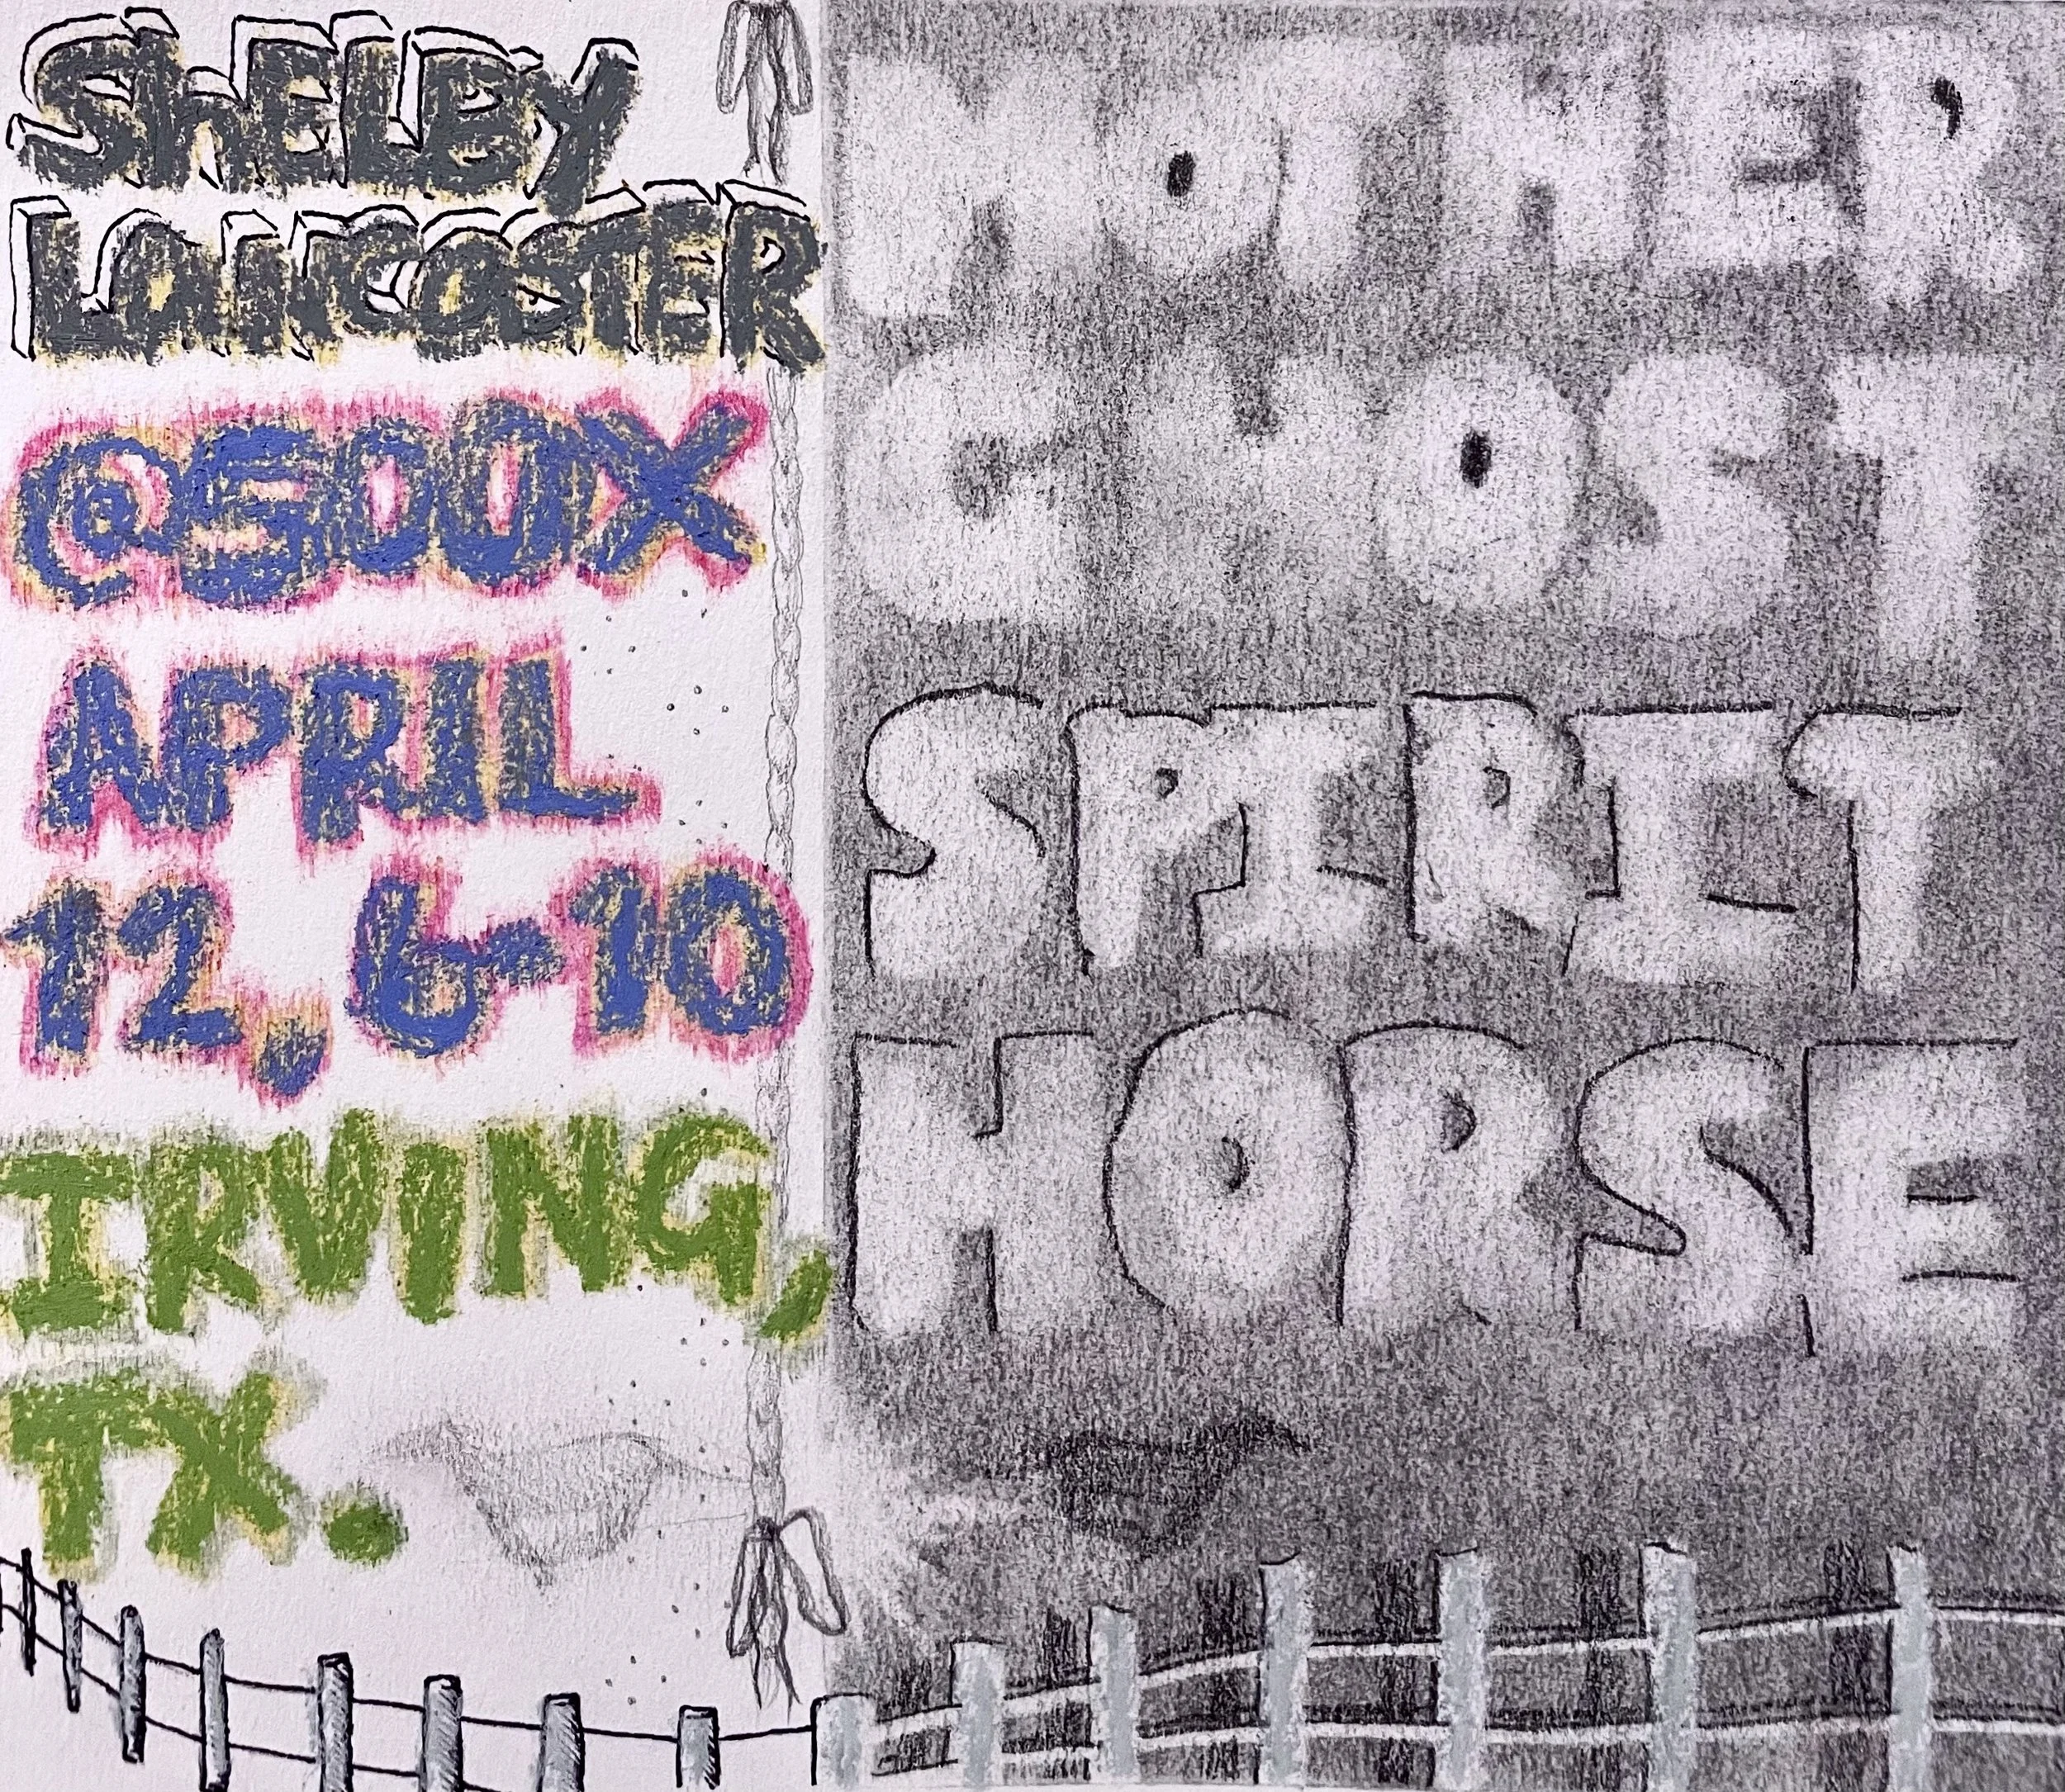 ShELBY
LaNCaSTER
@500X
APRIL
12, 6-10
IRVING,
TX.
MOTHER
GHOST
SPIRIT
HORSE